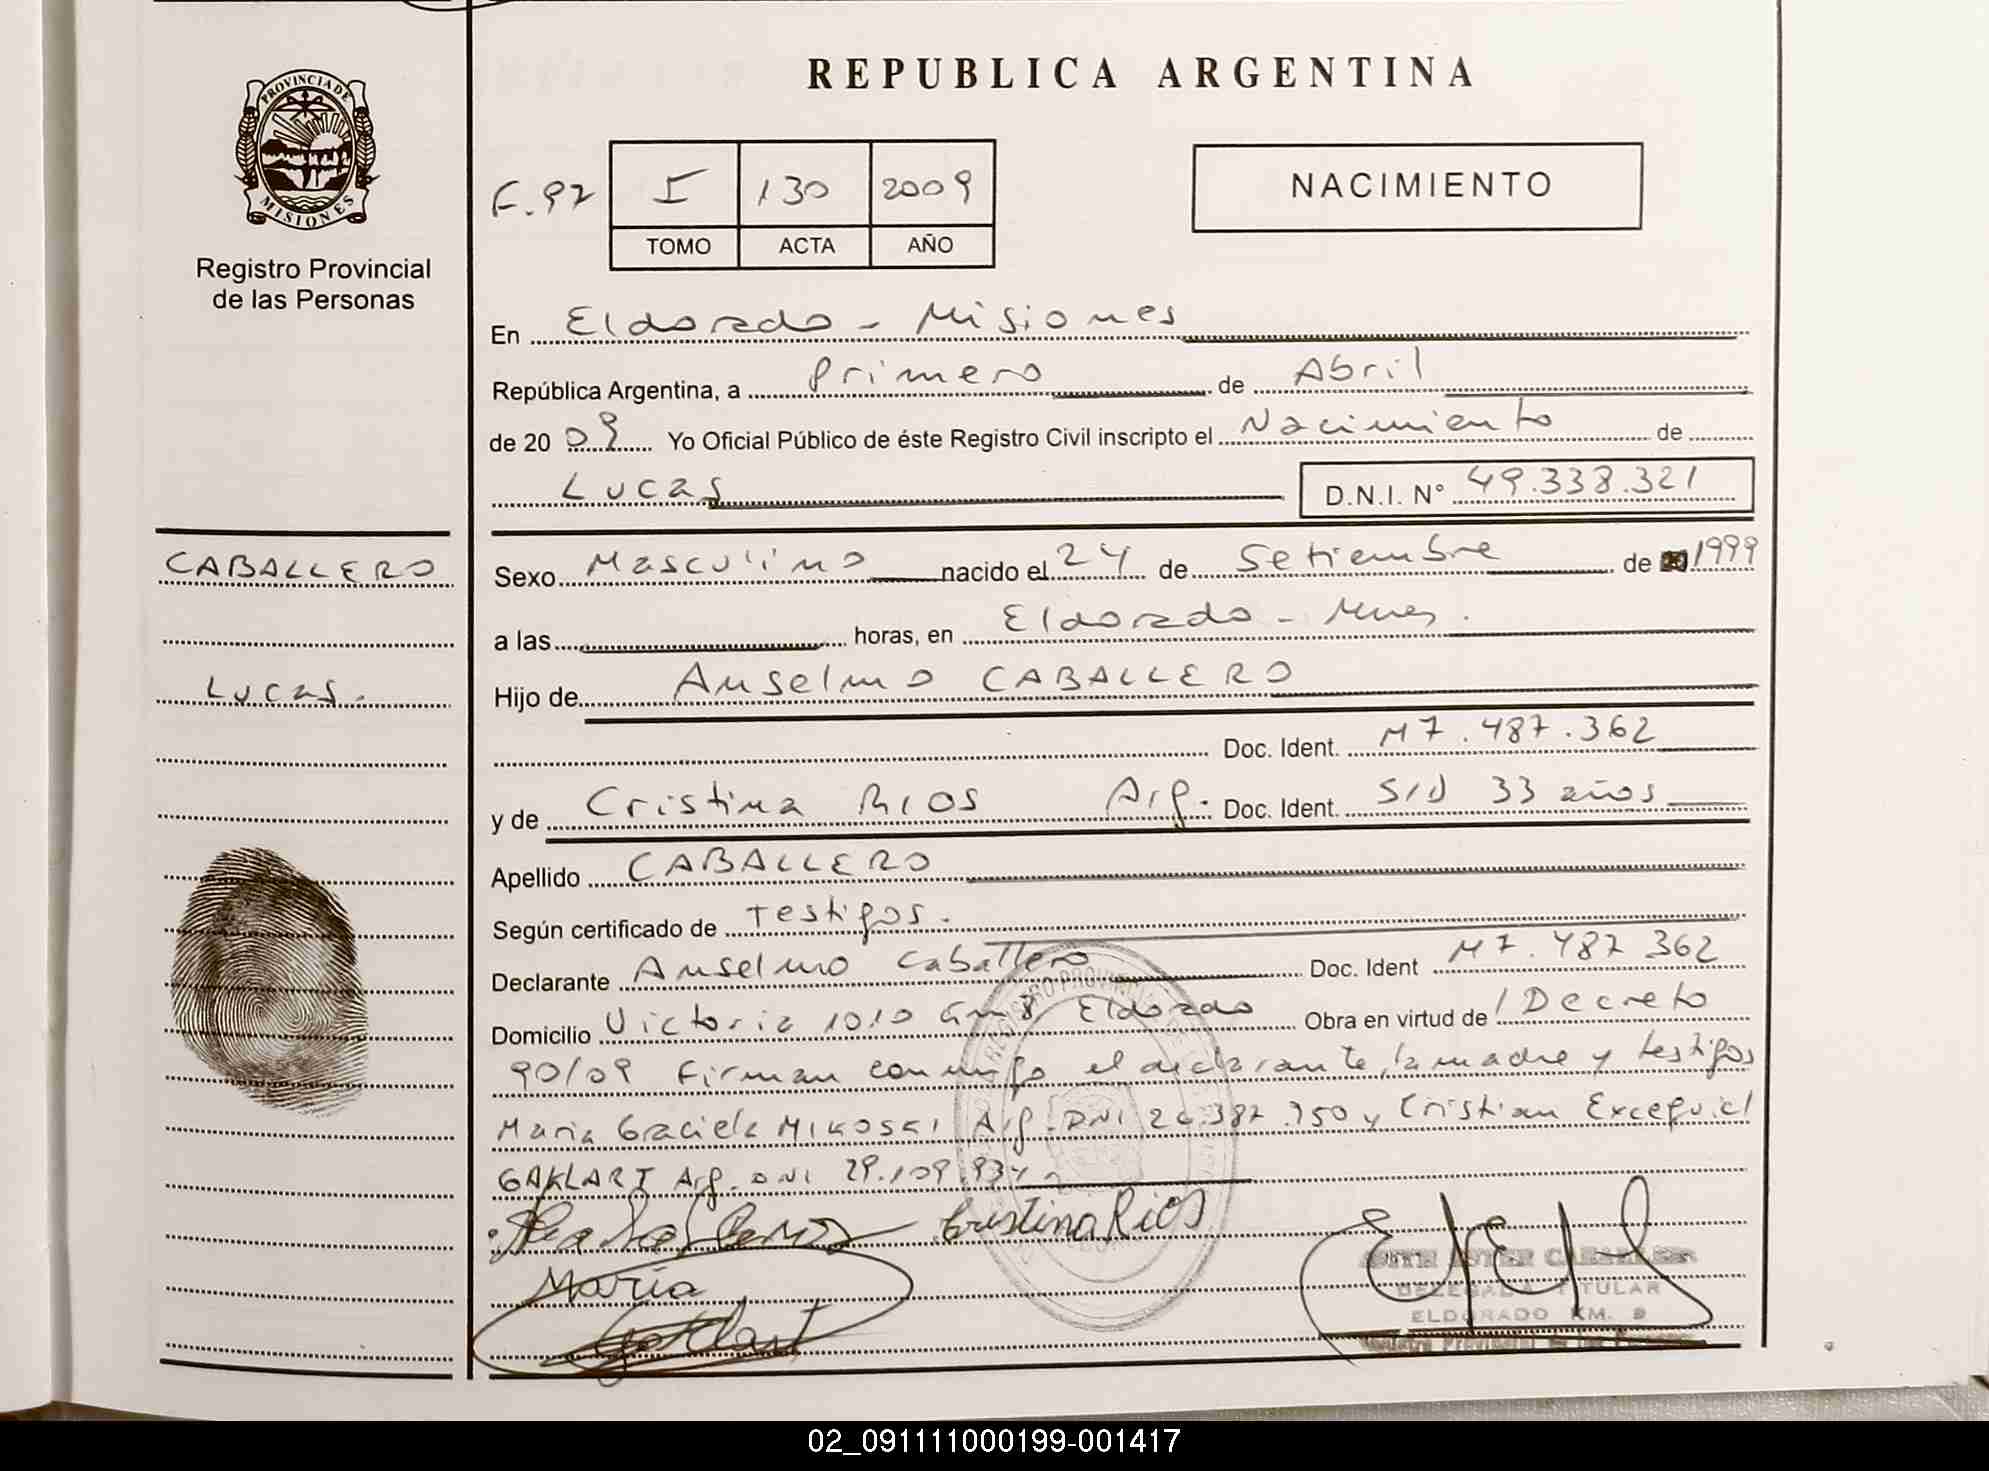 REPUBLICA ARGENTINA
PROVINCIA DE
MISIONES
Registro Provincial
de las Personas
F. 97 I 130 2009
TOMO ACTA AÑO
NACIMIENTO
En Eldorado - Misiones
República Argentina, a Primero de Abril
de 20 09 Yo Oficial Público de éste Registro Civil inscripto el Nacimiento de
Lucas D.N.I. N° 49.338.321
CABALLERO
Lucas.
Sexo Masculino nacido el 24 de Setiembre de 1999
a las horas, en Eldorado - Mnes.
Hijo de Anselmo CABALLERO
Doc. Ident. M7.487.362
y de Cristina RIOS Arg. Doc. Ident. S/D 33 años
Apellido CABALLERO
Según certificado de Testigos.
Declarante Anselmo Caballero Doc. Ident M7.487.362
Domicilio Victoria 1010 Km 8 Eldorado Obra en virtud de Decreto
90/09 Firman conmigo el declarante, la madre y testigos
Maria Graciela MIKOSKI Arg. DNI 26.387.750 y Cristian Excequiel
GAKLART Arg. DNI 29.109.934
Cristina Rios
María
CABALLER
DELEGADA TITULAR
ELDORADO KM. 9
Registro Provincial de las Personas
02_091111000199-001417